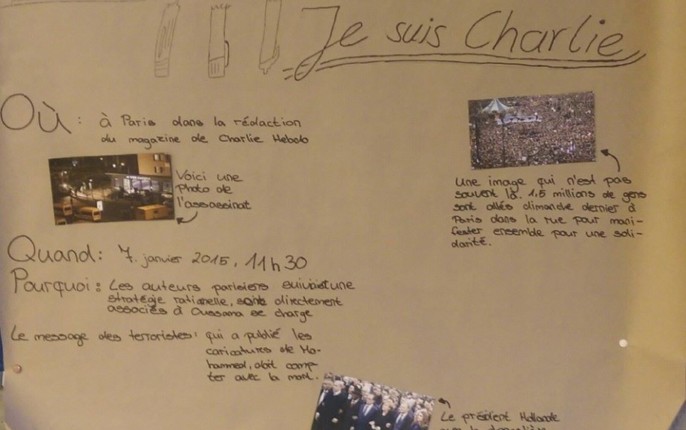 Je suis Charlie
Où : à Paris dans la rédaction
du magazine de Charlie Hebdo
Voici une
Photo de
l'assassinat
Une image qui n'est pas
souvent là. 1.5 millions de gens
sont allés dimanche dernier à
Paris dans la rue pour mani-
fester ensemble pour une soli-
darité.
Quand: 7. janvier 2015, 11h30
Pourquoi: Les auteurs parisiens suivaient une
stratégie rationelle, sont directement
associés à Oussama se charge
Le message des terroristes: qui a publié les
caricatures de Mo-
hammed, doit comp-
ter avec la mort.
Le président Hollande